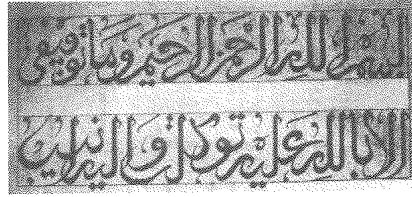 بسم الله الرحمن الرحيم وما توفيقي
الا بالله عليه توكلت واليه انيب